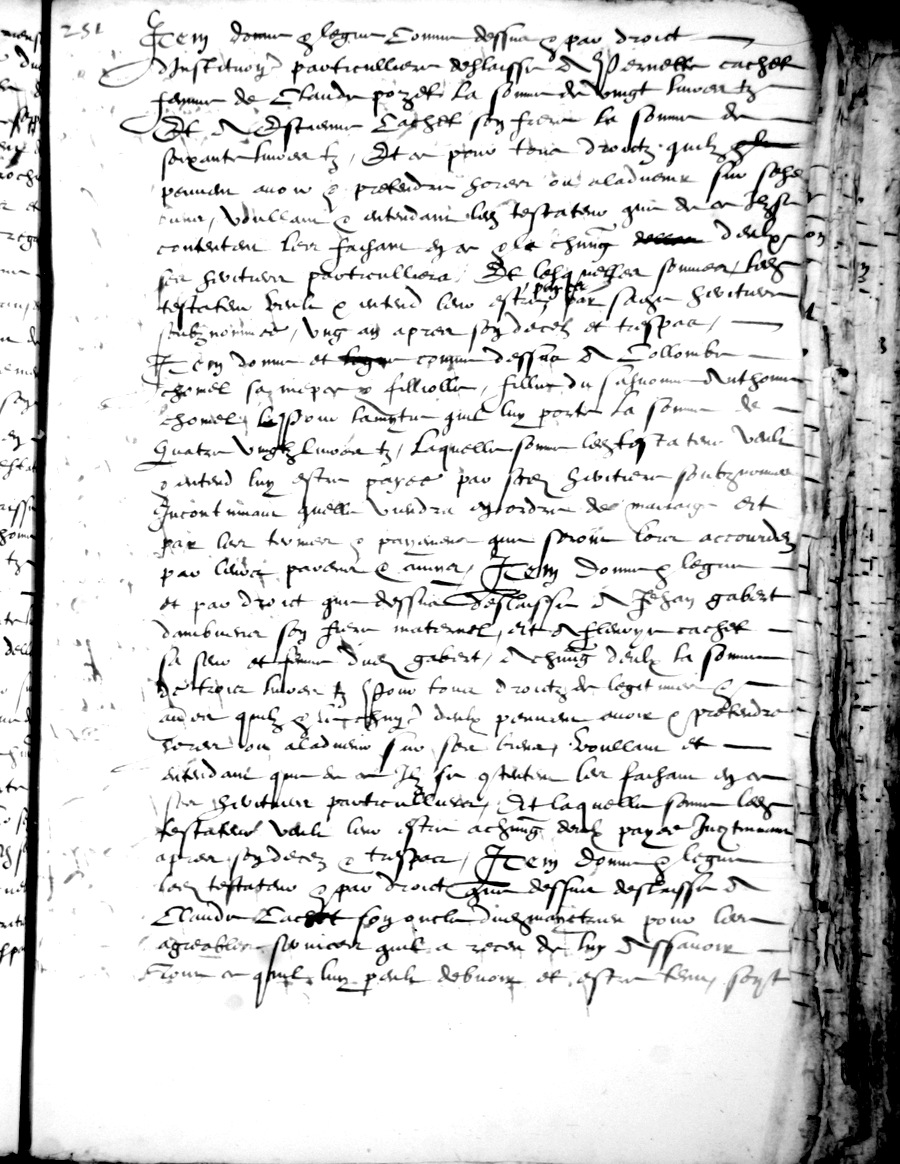 251
Item donne & legue comme dessus & par droict
d'Institution particulliere deslaisse a Pernette cachet
femme de Claude pozet la somme de vingt livres tz
Et a Estienne Cachet son frere la somme de
soixante livres tz, Et ce pour tous droictz quilz
peuvent avoir & pretendre ores ou aladvenir sur ses
biens, voullant & entendant led testateur que de ce ilz se
contentent les faisant en ce & le chung deulx
ses heritiers particulliers, Et lesquelles sommes led
testateur veult & entend leur estre payees par sesd heritiers
soubznommes, ung an apres son deces et trespas,
Item donne et legue comme dessus a Collombe
chomel sa niepce & filliolle, fille du sieur Anthoine
chomel, Pour lamytie quil luy porte la somme de
Quatre vingtz livres tz, Laquelle somme led testateur veult
& entend luy estre payee par sesd heritiers soubznommes
Incontinant quelle viendra en ordre de mariage Et
par les termes & payemens que seront lors accordez
par leurs parens & amys, Item donne & legue
et par droict que dessus deslaisse a Jehan gabert
dambierle son frere maternel, et a fleurye cachet
sa seur et femme dud gabert, a chung deulx la somme
de trois livres tz Pour tous droictz de legitime &
autres quilz & ung chung deulx peuvent avoir & pretendre
ores ou aladvenir sur ses biens, voullant et
entendant que de ce ilz se contentent les faisant en ce
ses heritiers particulliers, Et laquelle somme led
testateur veult leur estre a chung deulx payee Incontinant
apres son deces & trespas, Item donne & legue
led testateur & par droict que dessus deslaisse a
Claude Cachet son oncle pour les
agreables services quil a receu de luy Assavoir
tout ce quil luy peult debvoir et estre tenu soyt